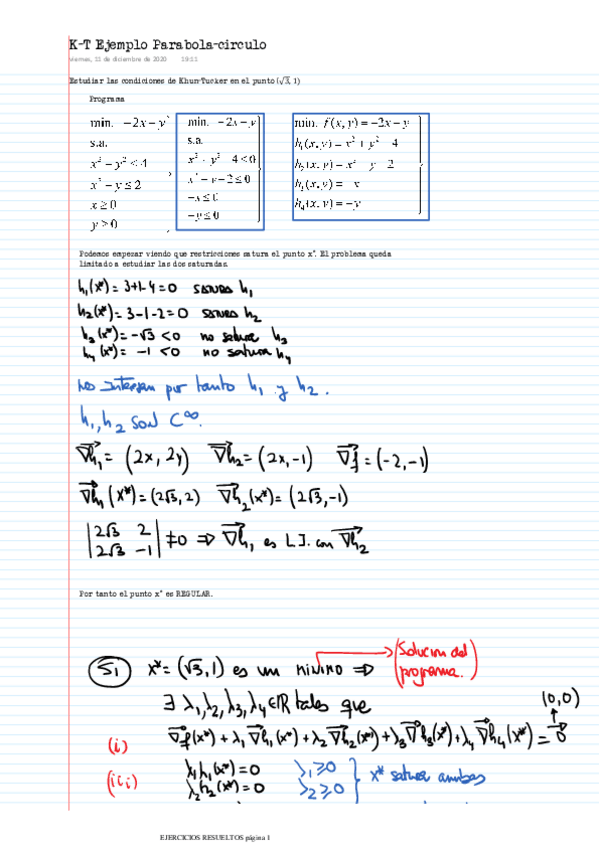 K-T Ejemplo Parabola-circulo
viernes, 11 de diciembre de 2020 19:11
Estudiar las condiciones de Khun-Tucker en el punto (√3, 1)
Programa
min. −2x−y
s.a.
x² − y² < 4
x² − y ≤ 2
x ≥ 0
y > 0
min. −2x−y
s.a.
x² · y² 4<0
x² − y−2≤0
−x≤0
−y≤0
min. f(x, y) = −2x−y
h₁(x, y) = x² + y² 4
h₂(x, y) = x² y 2
h₃(x, y) = x
h₄(x, y) = −y
Podemos empezar viendo que restricciones satura el punto x*. El problema queda
limitado a estudiar las dos saturadas.
h₁(x*) = 3+1-4=0 satura h₁
h₂(x*) = 3-1-2=0 satura h₂
h₃(x*) = -√3 <0 no satura h₃
h₄(x*) = -1 <0 no satura h₄
Nos interesan por tanto h₁ y h₂.
h₁, h₂ son C^∞.
∇h₁ = (2x, 2y) ∇h₂ = (2x, -1) ∇f = (-2, -1)
∇h₁(x*) = (2√3, 2) ∇h₂(x*) = (2√3, -1)
|2√3 2|
|2√3 -1| ≠0 ⇒ ∇h₁ es L.I. con ∇h₂
Por tanto el punto x* es REGULAR.
Si x* = (√3, 1) es un mínimo ⇒ (Solución del
programa.)
∃ λ₁, λ₂, λ₃, λ₄ ∈ℝ tales que
(0,0)
(i) ∇f(x*) + λ₁ ∇h₁(x*) + λ₂ ∇h₂(x*) + λ₃ ∇h₃(x*) + λ₄ ∇h₄(x*) = 0
(ii) λ₁h₁(x*) = 0 λ₁≥0
λ₂h₂(x*) = 0 λ₂≥0 } x* satura ambas
EJERCICIOS RESUELTOS página 1